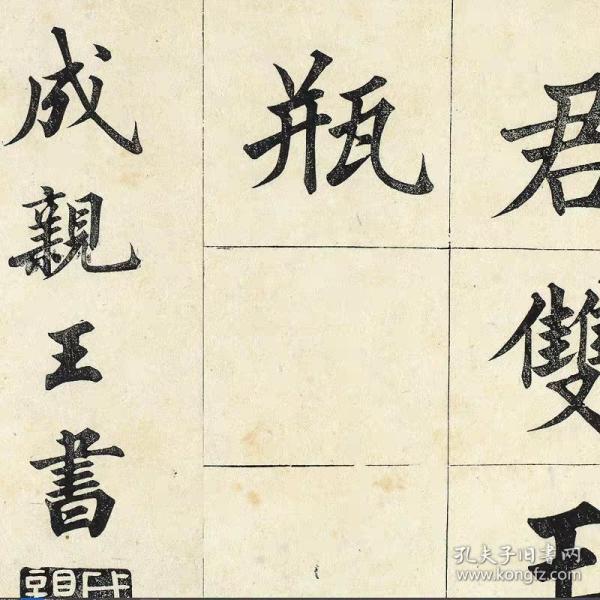 君雙玉
瓶
成親王書
孔夫子旧书网
www.kongfz.com